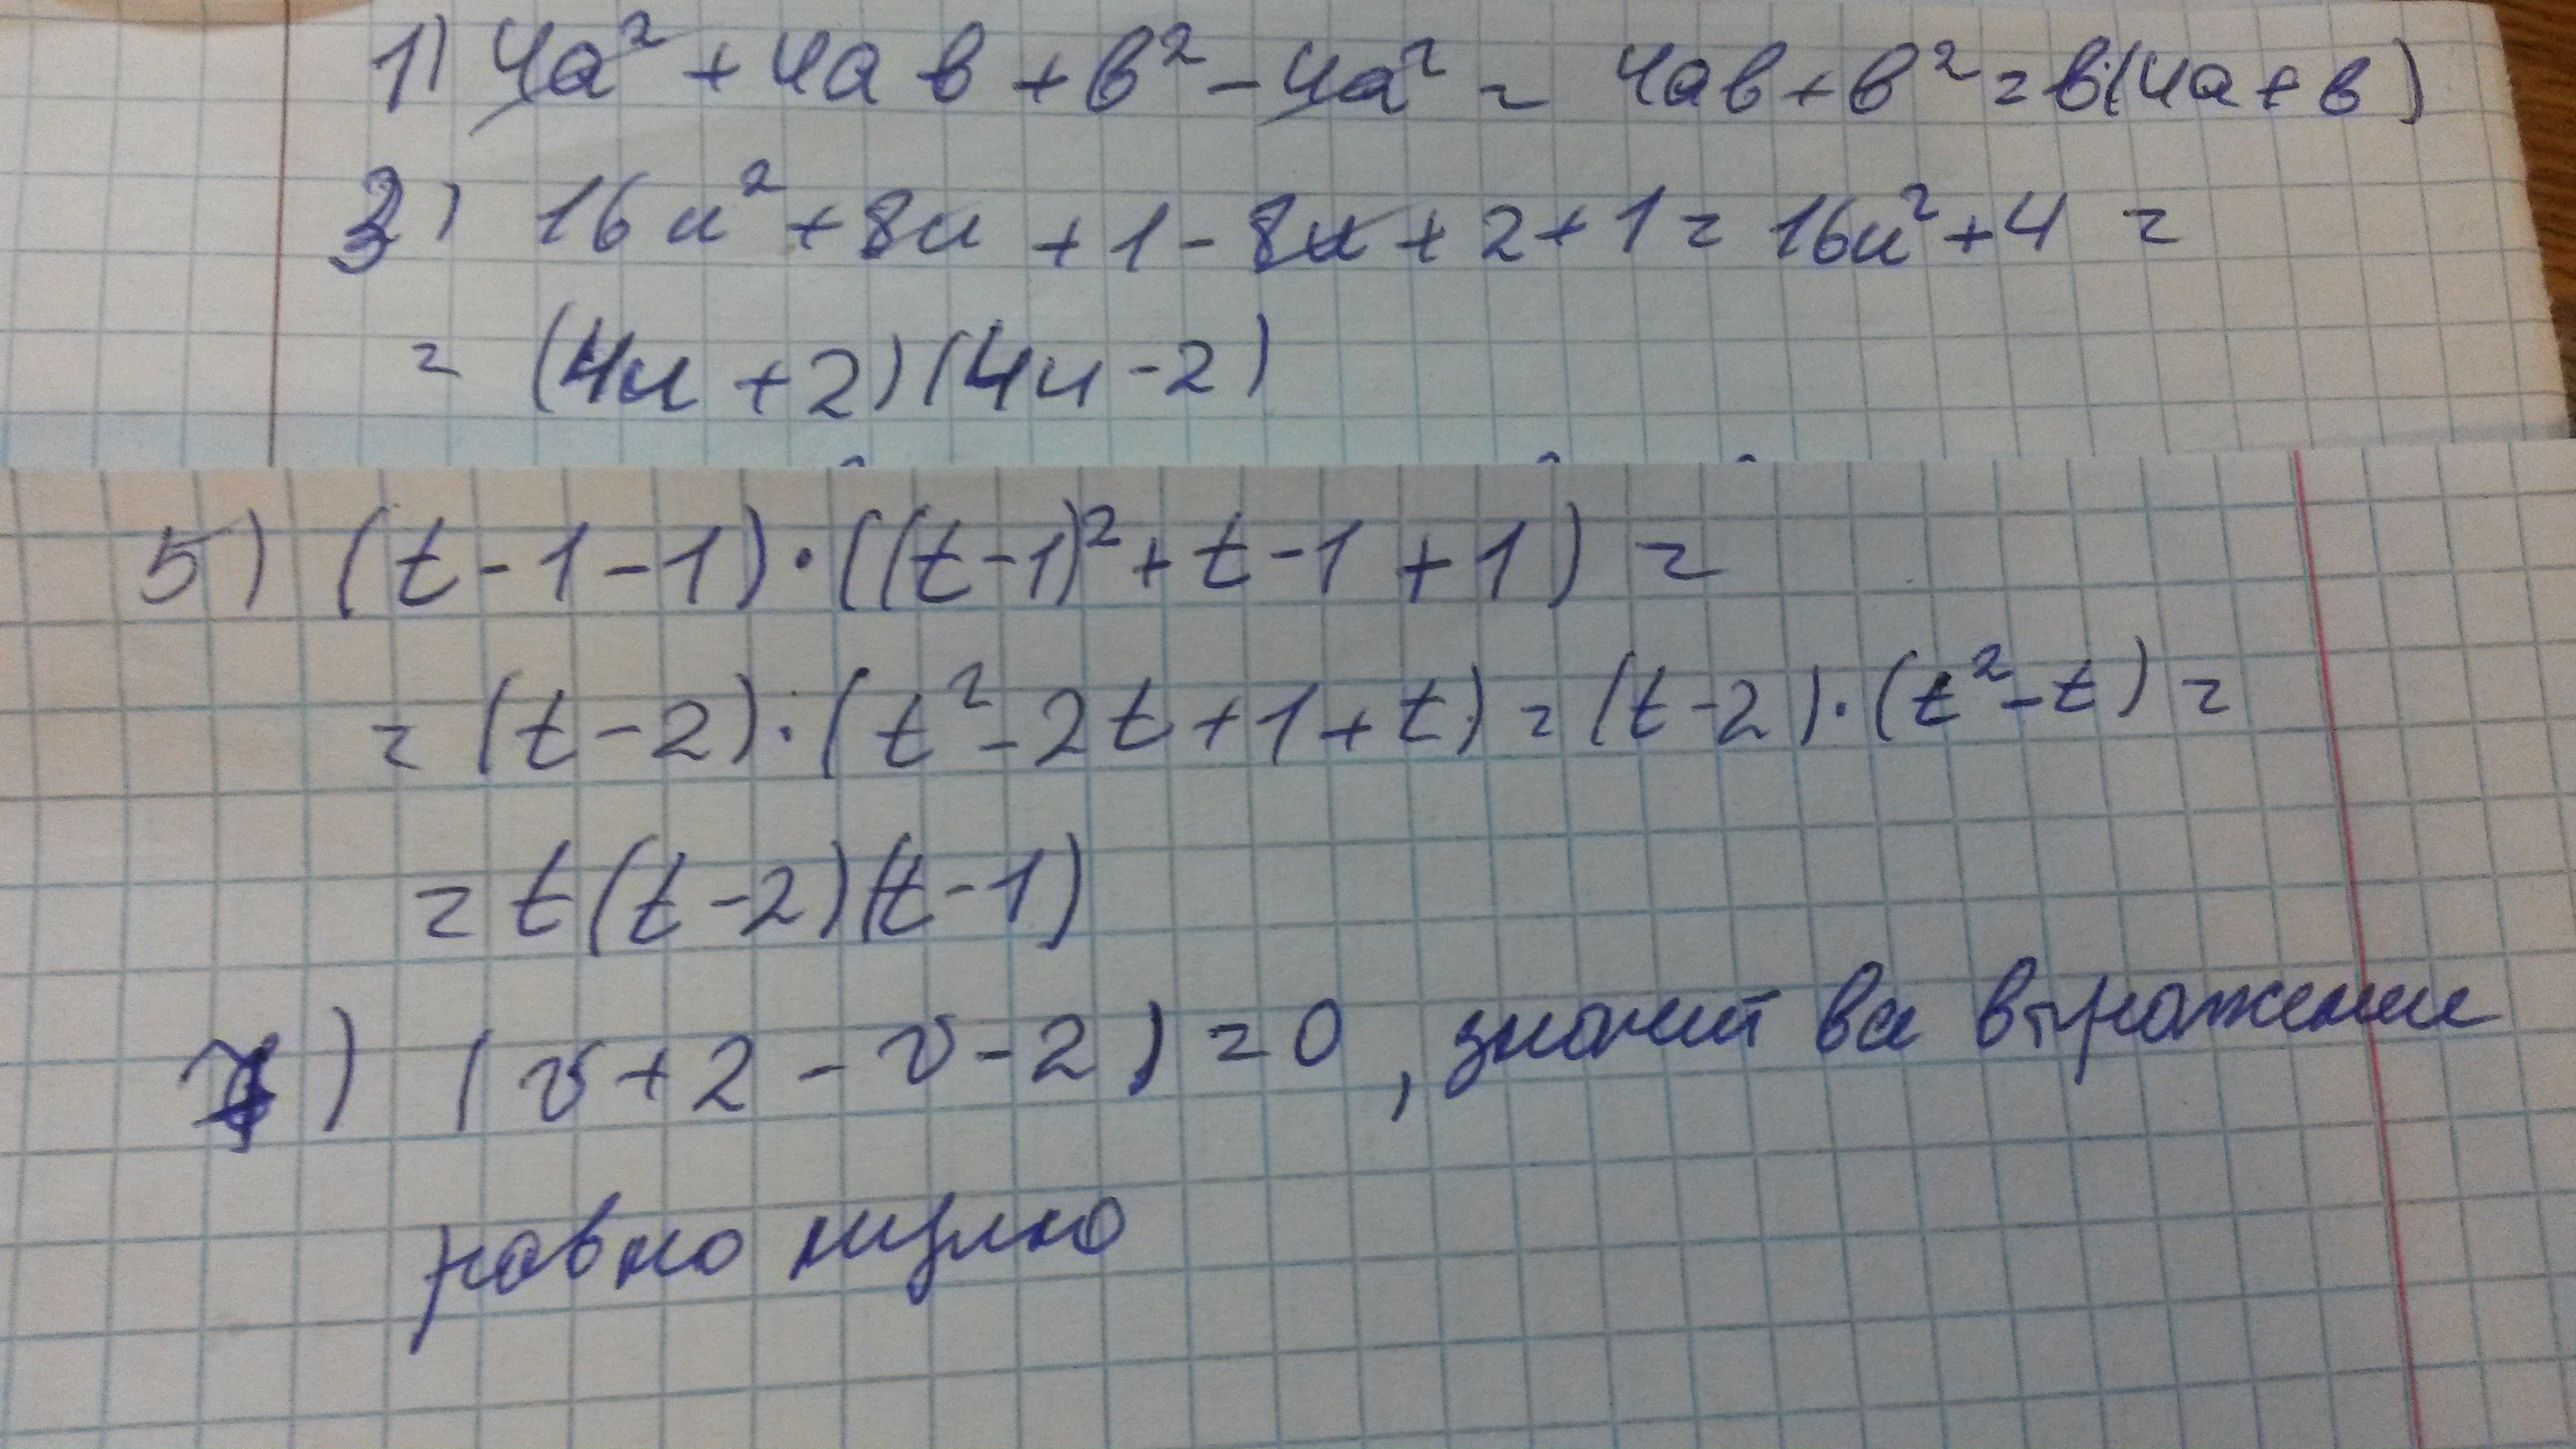 1) 4a² + 4ab + b² - 4a² = 4ab + b² = b(4a + b)
3) 16u² + 8u + 1 - 8u + 2 + 1 = 16u² + 4 =
= (4u + 2)(4u - 2)
5) (t - 1 - 1)·((t - 1)² + t - 1 + 1) =
= (t - 2)·(t² - 2t + 1 + t) = (t - 2)·(t² - t) =
= t(t - 2)(t - 1)
7) (v + 2 - v - 2) = 0, значит все выражение
равно нулю